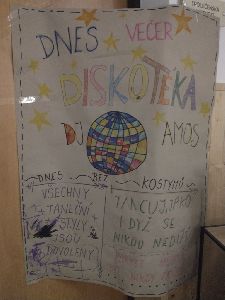 DNES VEČER
DISKOTÉKA
DJ AMOS
DNES BEZ KOSTÝMŮ
VŠECHNY
TANEČNÍ
STYLY
JSOU
DOVOLENY
TANCUJ JAKO
DYŽ SE
NIKDO NEDÍVÁ